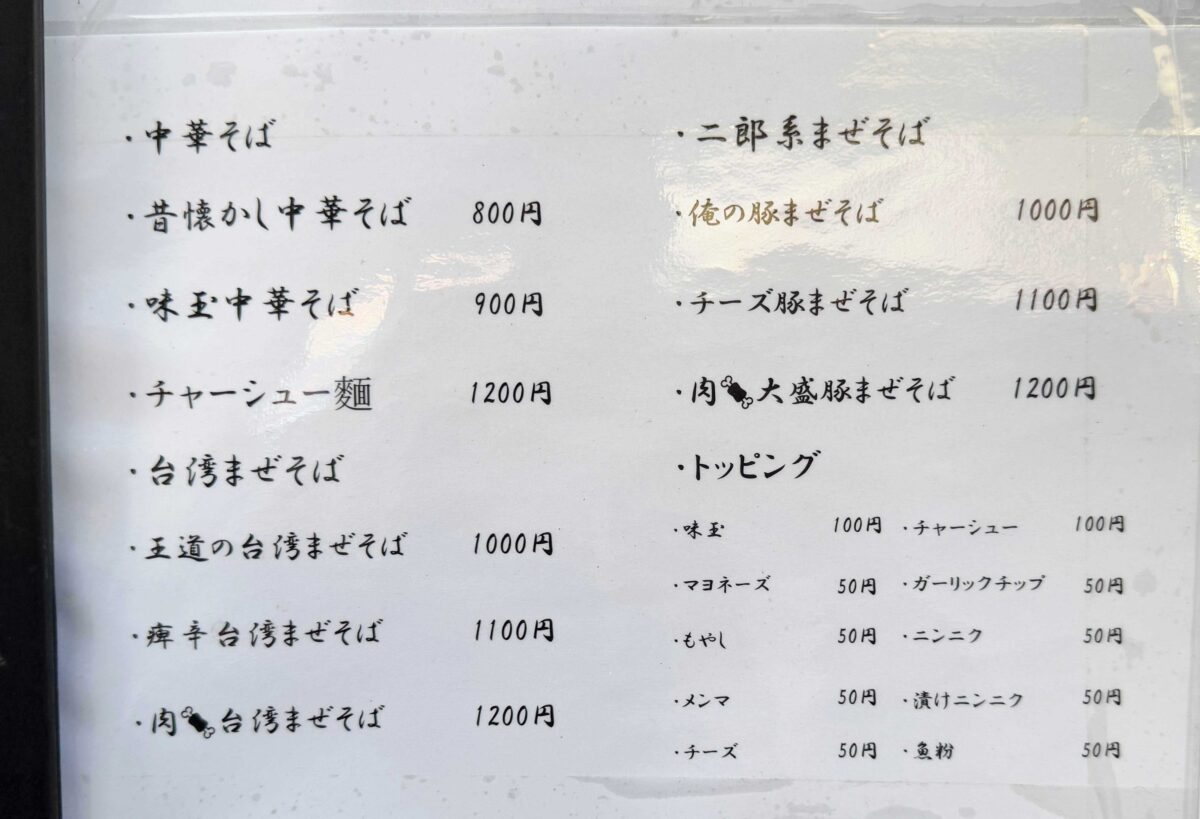 ・中華そば
・昔懐かし中華そば 800円
・味玉中華そば 900円
・チャーシュー麺 1200円
・台湾まぜそば
・王道の台湾まぜそば 1000円
・痺辛台湾まぜそば 1100円
・肉台湾まぜそば 1200円
・二郎系まぜそば
・俺の豚まぜそば 1000円
・チーズ豚まぜそば 1100円
・肉大盛豚まぜそば 1200円
・トッピング
・味玉 100円 ・チャーシュー 100円
・マヨネーズ 50円 ・ガーリックチップ 50円
・もやし 50円 ・ニンニク 50円
・メンマ 50円 ・漬けニンニク 50円
・チーズ 50円 ・魚粉 50円